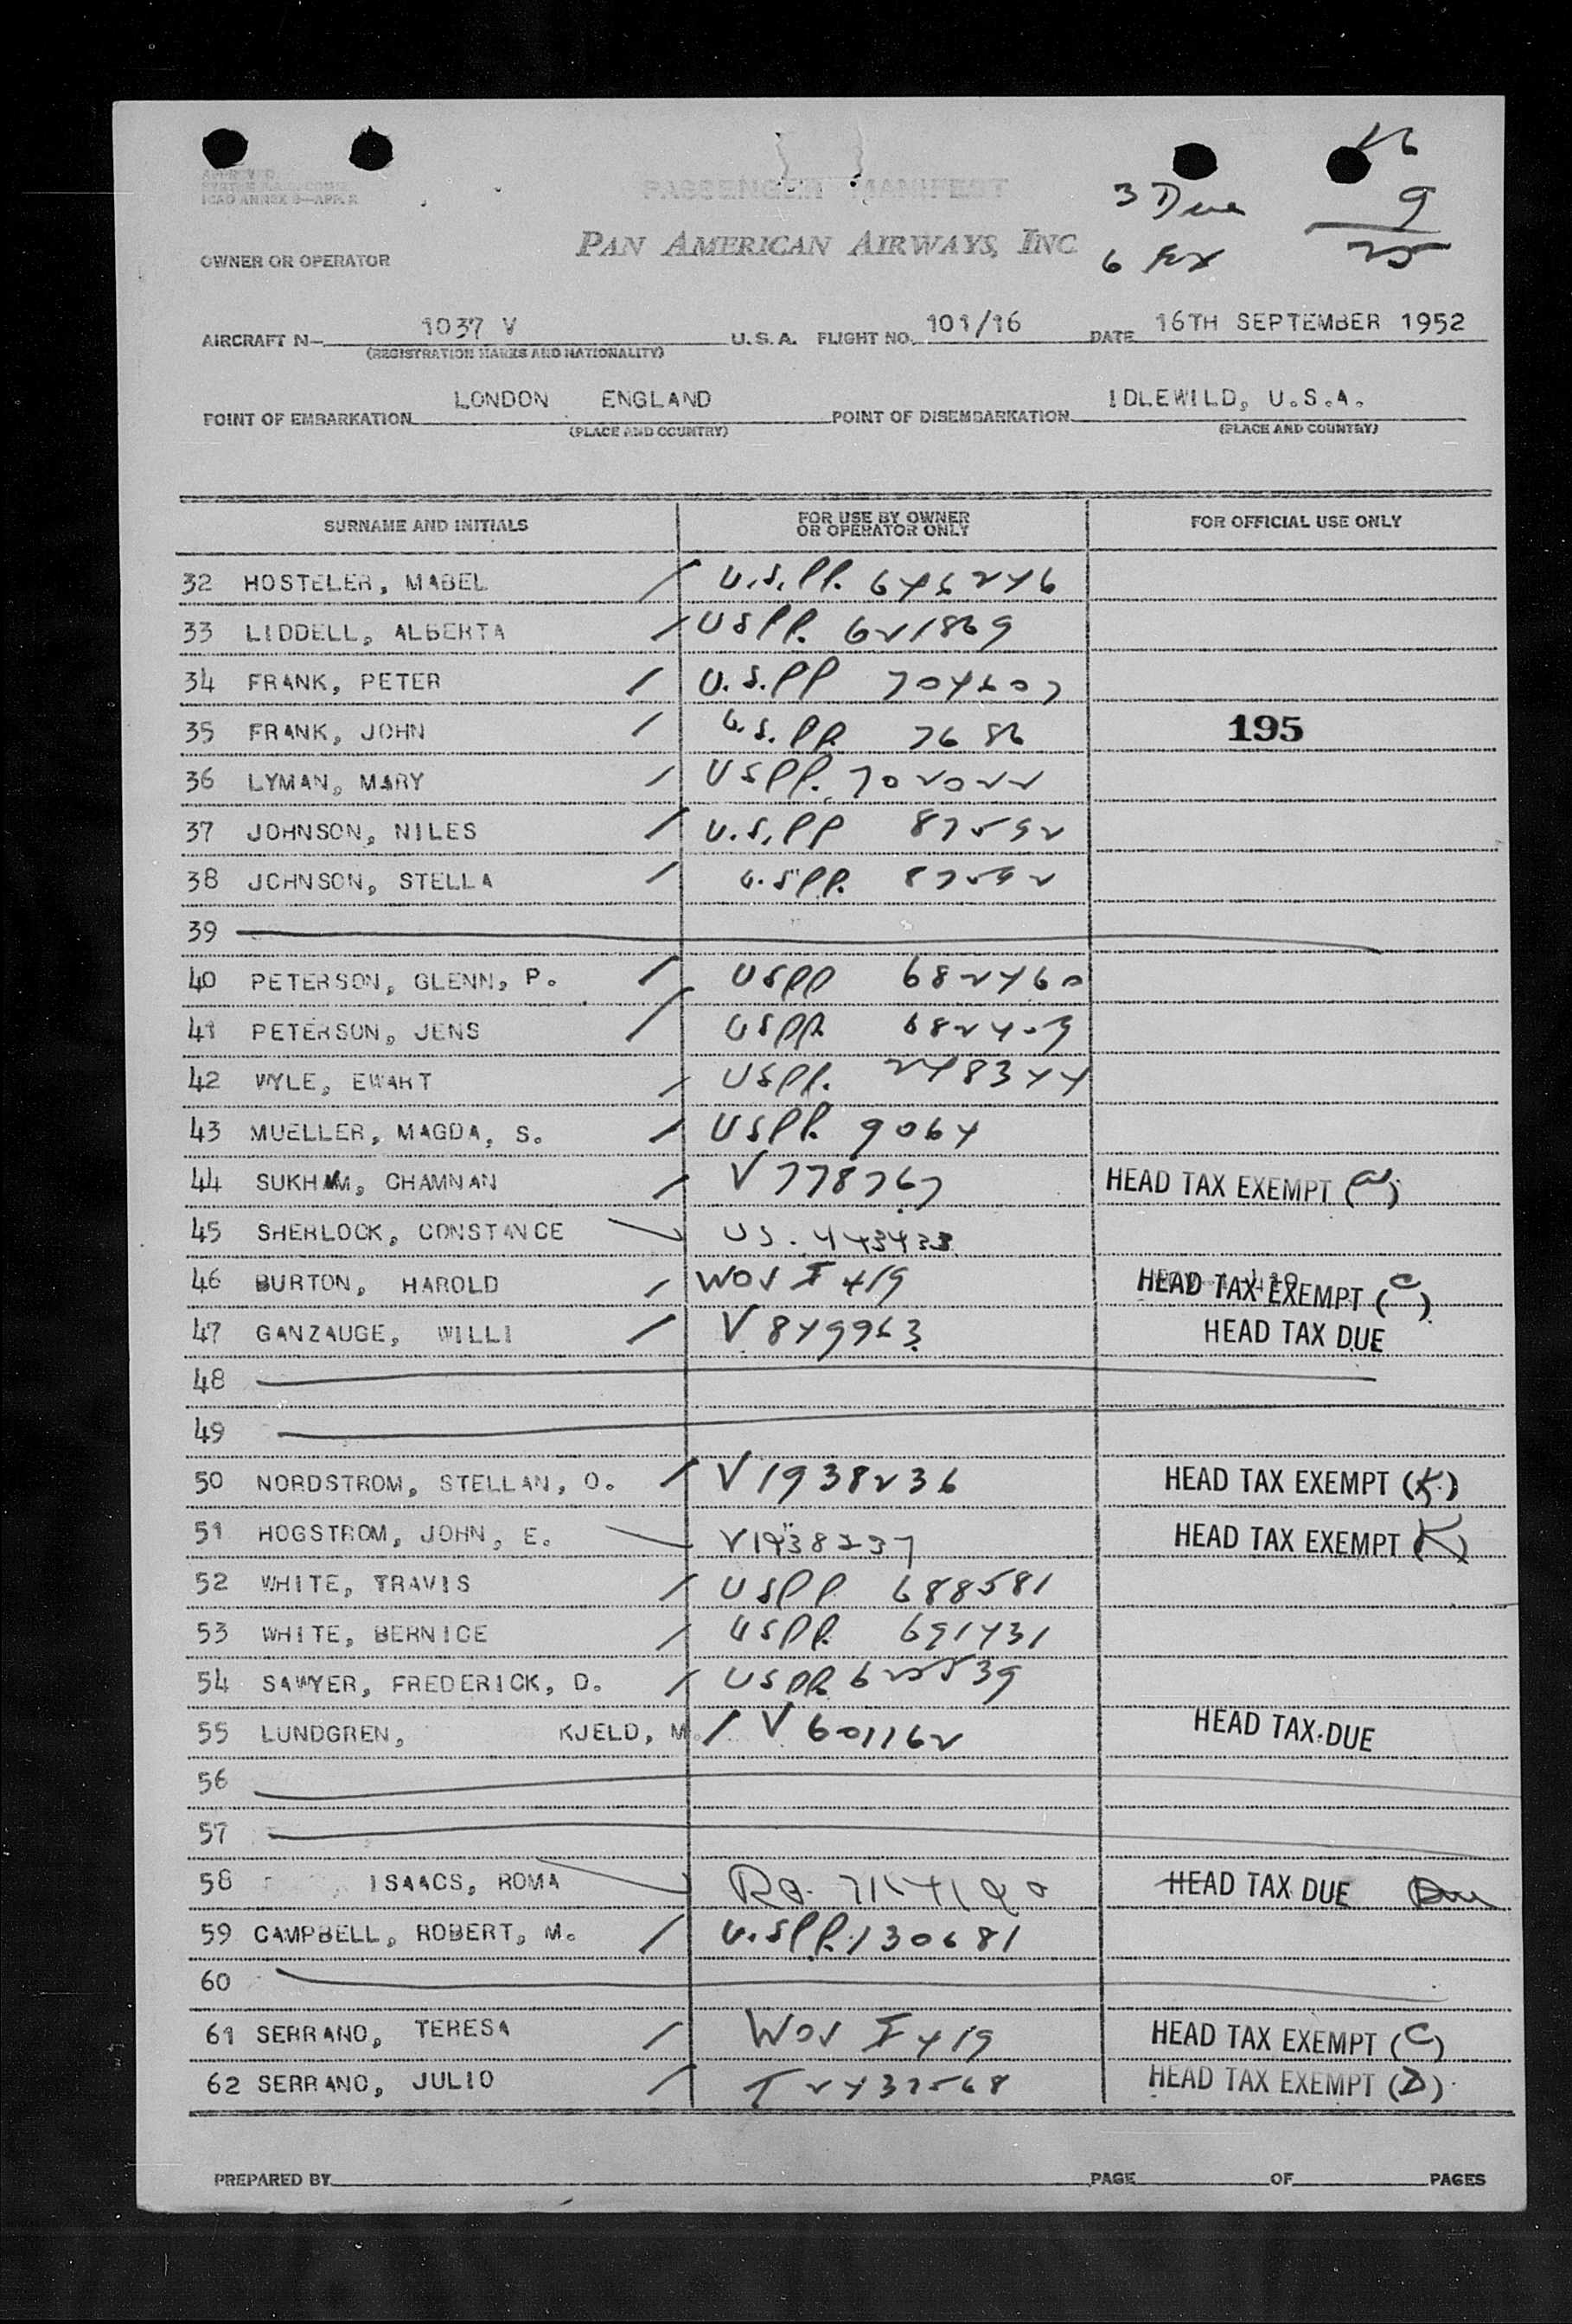 APPROVED
ICAO ANNEX 9—APP. 2
PASSENGER MANIFEST
PAN AMERICAN AIRWAYS, INC
16
3 Due 9
6 Ex 25
OWNER OR OPERATOR
AIRCRAFT N— 1037 V U.S.A. FLIGHT NO. 101/16 DATE 16TH SEPTEMBER 1952
(REGISTRATION MARKS AND NATIONALITY)
POINT OF EMBARKATION LONDON ENGLAND POINT OF DISEMBARKATION IDLEWILD, U.S.A.
(PLACE AND COUNTRY) (PLACE AND COUNTRY)
SURNAME AND INITIALS FOR USE BY OWNER OR OPERATOR ONLY FOR OFFICIAL USE ONLY
32 HOSTELER, MABEL / U.S.PP. 646246
33 LIDDELL, ALBERTA / USPP. 621869
34 FRANK, PETER / U.S.PP 704607
35 FRANK, JOHN / U.S.PP. 7686 195
36 LYMAN, MARY / USPP. 702022
37 JOHNSON, NILES / U.S.PP 87592
38 JOHNSON, STELLA / U.SPP. 87592
39
40 PETERSON, GLENN, P. / USPP 682460
41 PETERSON, JENS / USPP. 682409
42 WYLE, EWART / USPP. 248344
43 MUELLER, MAGDA, S. / USPP. 9064
44 SUKHAM, CHAMNAN / V778767 HEAD TAX EXEMPT
45 SHERLOCK, CONSTANCE US. 443433
46 BURTON, HAROLD / WOV I 419 HEAD TAX EXEMPT (C)
47 GANZAUGE, WILLI / V 849963 HEAD TAX DUE
48
49
50 NORDSTROM, STELLAN, O. / V1938236 HEAD TAX EXEMPT (K)
51 HOGSTROM, JOHN, E. V1938237 HEAD TAX EXEMPT (K)
52 WHITE, TRAVIS / USPP 688581
53 WHITE, BERNICE / USPP. 691431
54 SAWYER, FREDERICK, D. / USPP 625539
55 LUNDGREN, KJELD, M. / V 601162 HEAD TAX DUE
56
57
58 ISAACS, ROMA HEAD TAX DUE Due
59 CAMPBELL, ROBERT, M. / U.SPP. 130681
60
61 SERRANO, TERESA / WOV I 419 HEAD TAX EXEMPT (C)
62 SERRANO, JULIO / T2437568 HEAD TAX EXEMPT (D)
PREPARED BY PAGE OF PAGES